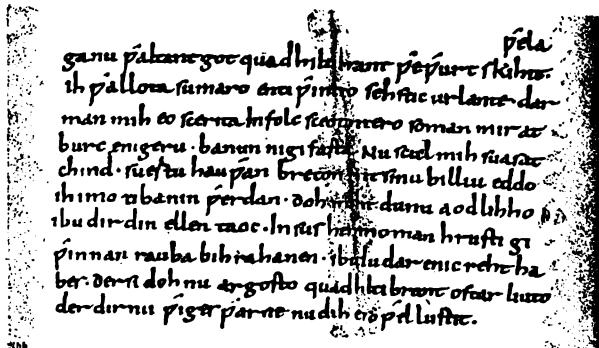 ƿela
ga nu ƿaltant got quad hiltibrant ƿeƿurt skihit.
ih ƿallota sumaro enti ƿintro sehstic ur lante· dar
man mih eo scerita In folc sceotantero so man mir at
burc enigeru· banun ni gi fasta. Nu scal mih suasat
chind· suertu hauƿan breton mit sinu billiu eddo
ih imo ti banin ƿerdan· doh maht du nu aodlihho
ibu dir din ellen taoc· In sus heremo man hrusti gi
ƿinnan rauba bihrahanen· ibu du dar enic reht ha
bes· der si doh nu argosto quad hiltibrant ostar liuto
der dir nu ƿiges ƿarne nu dih es so ƿel lustit·